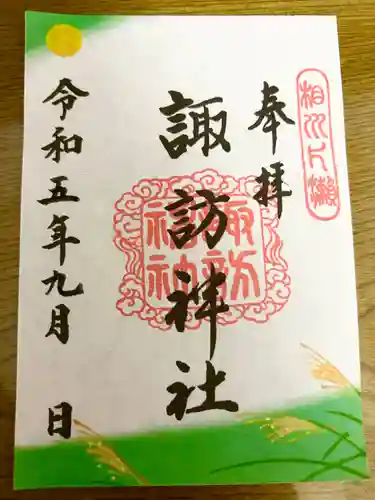 相州片瀬
奉拝
諏訪神社
諏訪神社
令和五年九月 日